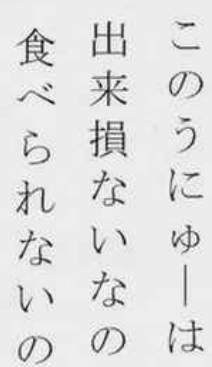 このうにゅーは
出来損ないなの
食べられないの